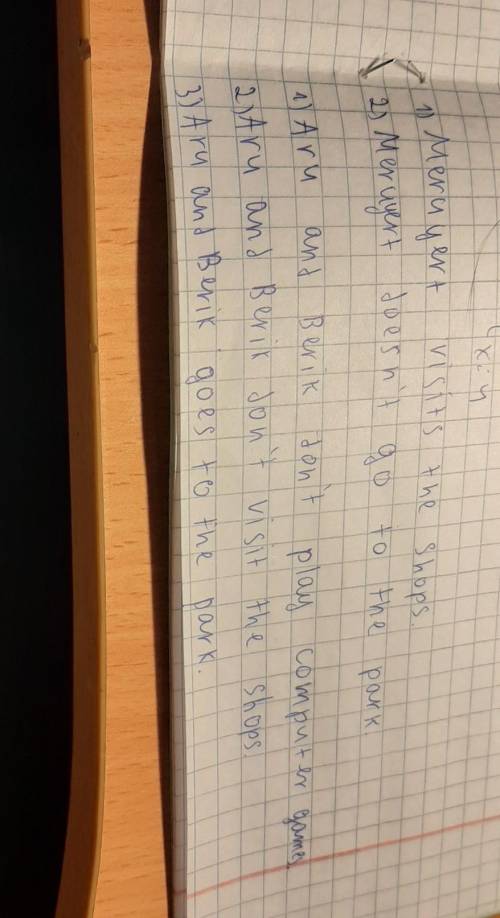 x:y
1) Meruyert visits the shops.
2) Meruyert doesn't go to the park
1) Aru and Berik don't play computer games.
2) Aru and Berik don't visit the shops.
3) Aru and Berik goes to the park.